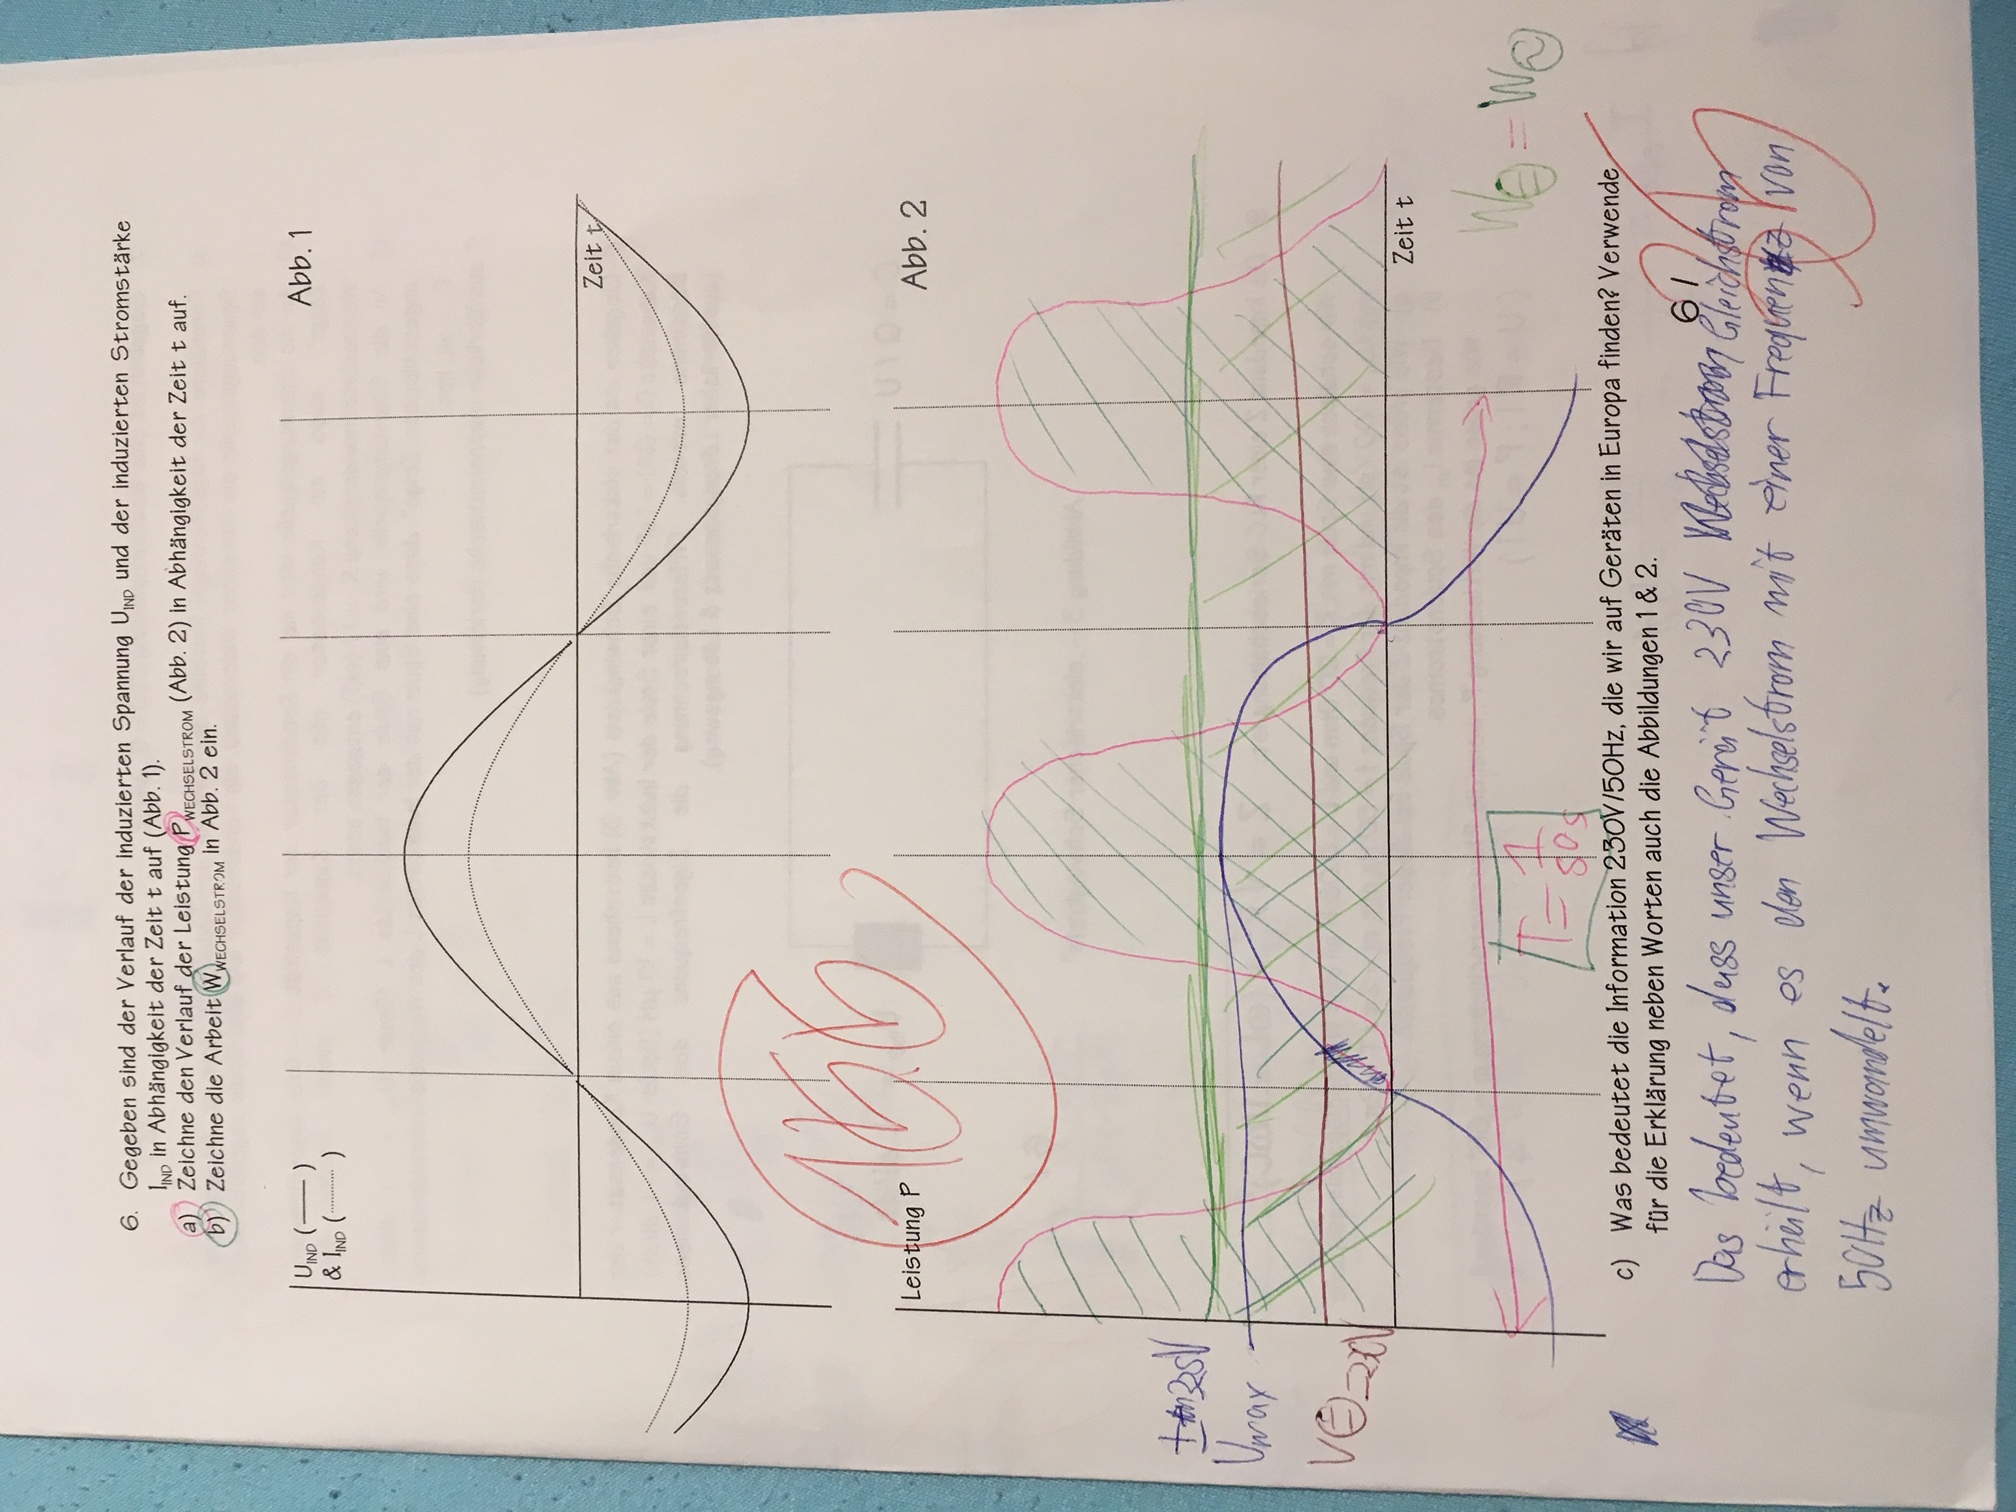 6. Gegeben sind der Verlauf der induzierten Spannung UIND und der induzierten Stromstärke
IIND in Abhängigkeit der Zeit t auf (Abb. 1).
a) Zeichne den Verlauf der Leistung PWECHSELSTROM (Abb. 2) in Abhängigkeit der Zeit t auf.
b) Zeichne die Arbeit WWECHSELSTROM in Abb. 2 ein.
UIND (——)
& IIND (..........)
Abb. 1
Zeit t
Leistung P
Abb. 2
325V
Umax
Zeit t
T = 1/50 s
W = W
c) Was bedeutet die Information 230V/50Hz, die wir auf Geräten in Europa finden? Verwende
für die Erklärung neben Worten auch die Abbildungen 1 & 2.
6 /
Das bedeutet, dass unser Gerät 230V Gleichstrom
erhält, wenn es den Wechselstrom mit einer Frequenz von
50Hz umwandelt.